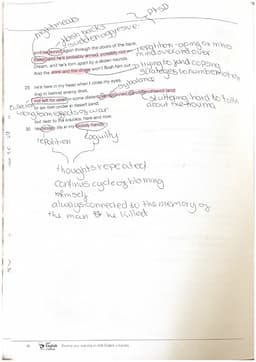 nightmares
PTSD
flash backs
sudden aggressive
and he bursts again through the doors of the bank.
Sleep, and he's probably armed, possibly not.
Dream, and he's torn apart by a dozen rounds.
And the drink and the drugs won't flush him out –
repitition - going on in his mind over and over
trying to find coping strategies to numb memory
sibilance
25 he's here in my head when I close my eyes,
dug in behind enemy lines,
not left for dead in some distant, sun-stunned, sand-smothered land
or six-feet-under in desert sand,
stuttering, hard to talk about the trauma
long term effects of war
but near to the knuckle, here and now,
30 his bloody life in my bloody hands.
repitition
guilty
thoughts repeated
continus cycle of blaming
himself
always connected to the memory of
the man he killed
English